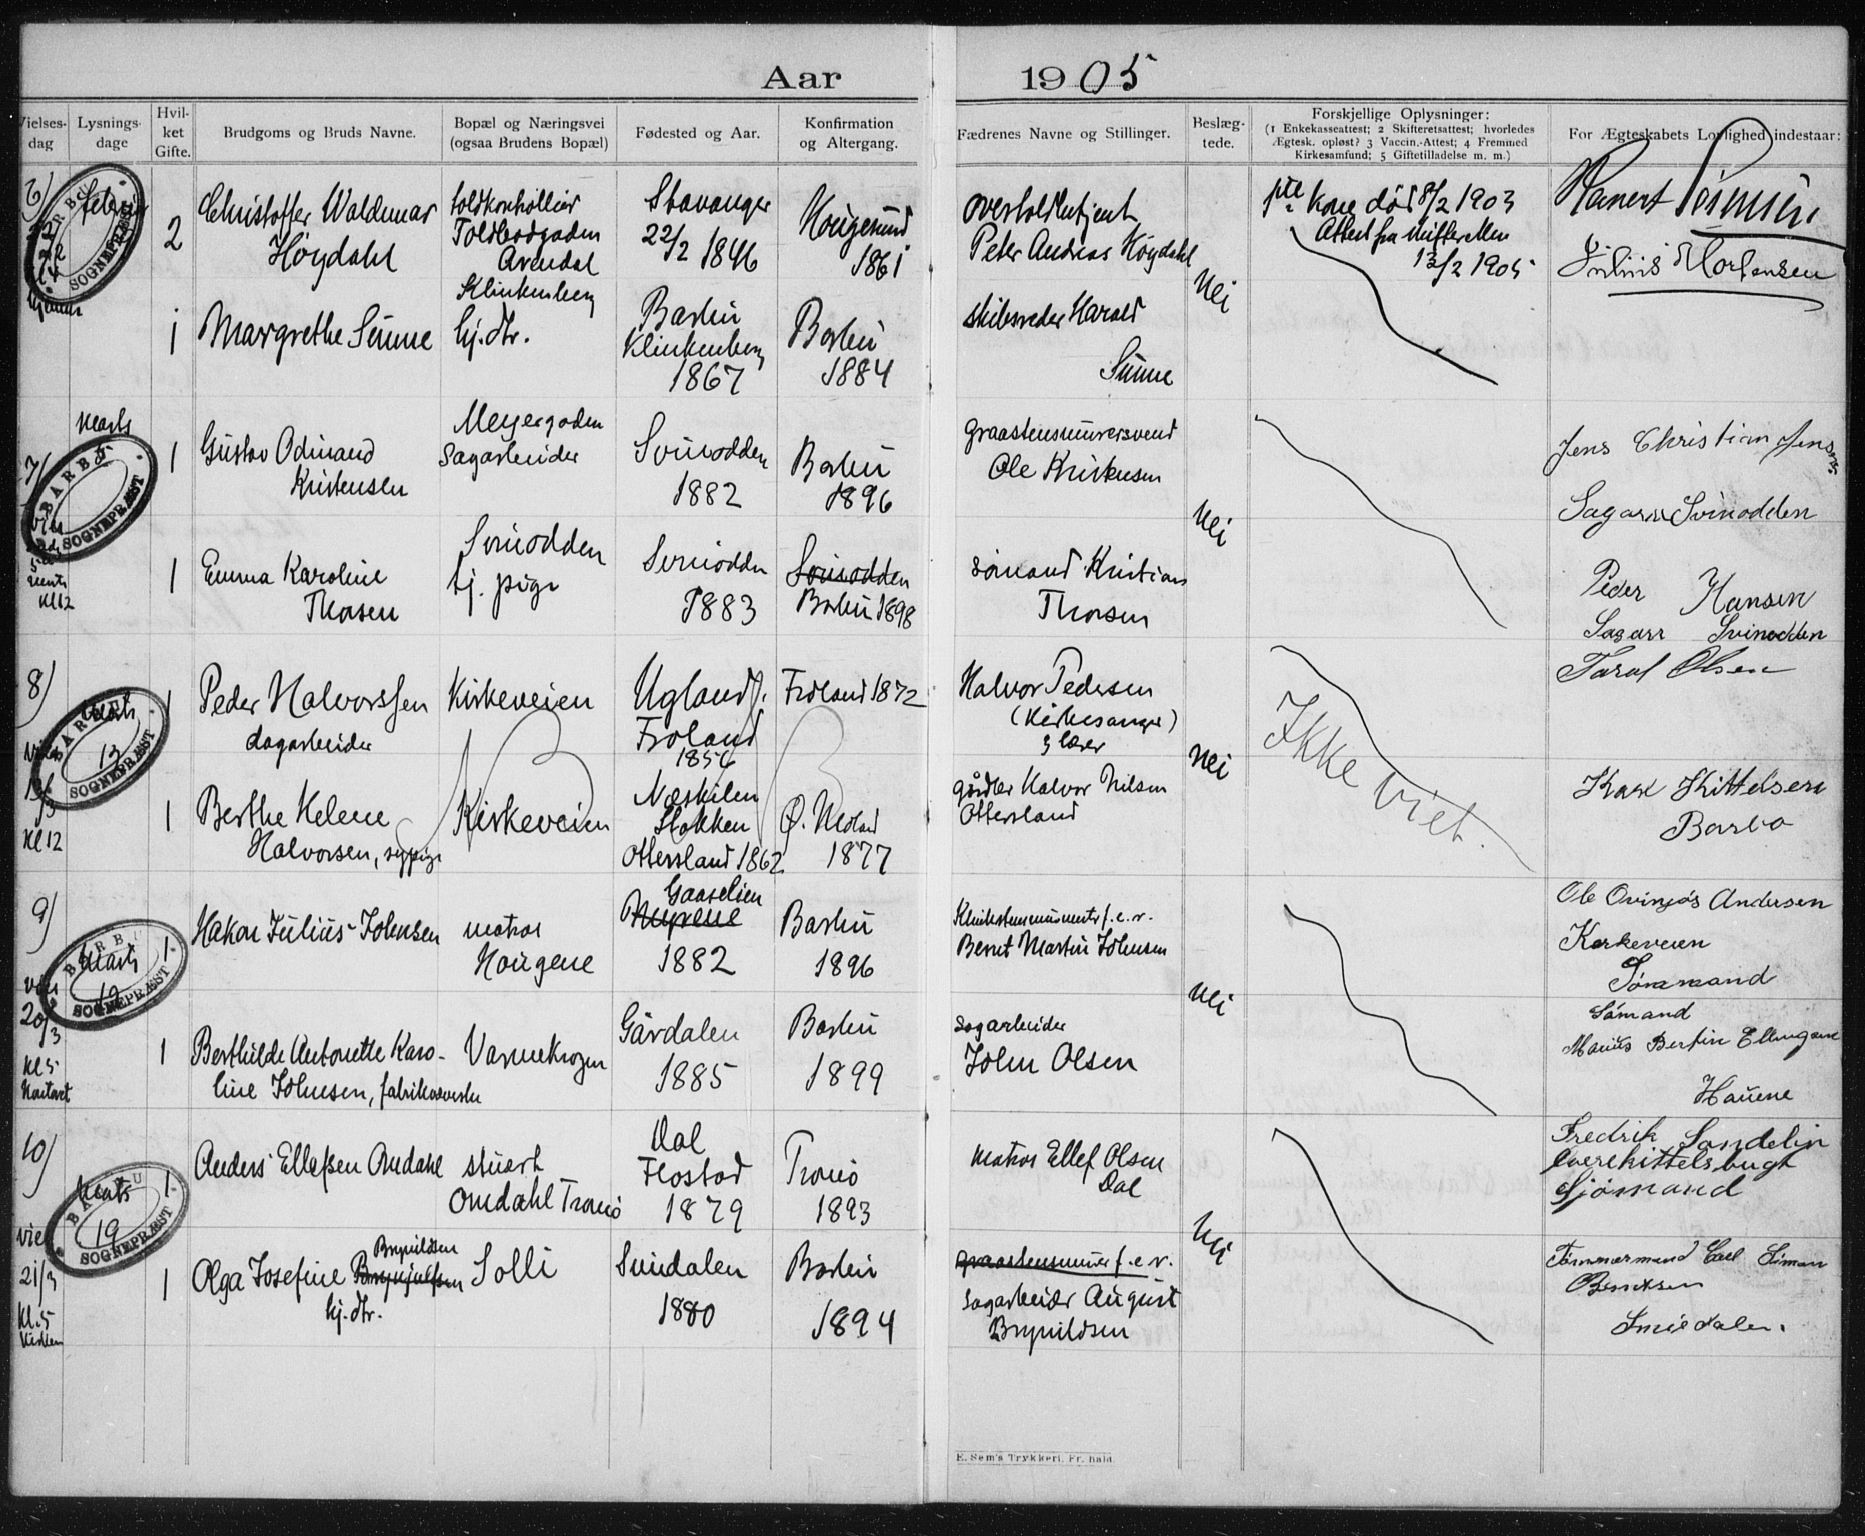 Aar 1905
Vielses-
dag
Lysnings-
dage
Hvil-
ket
Gifte.
Brudgoms og Bruds Navne.
Bopæl og Næringsvei
(ogsaa Brudens Bopæl)
Fødested og Aar.
Konfirmation
og Altergang.
Fædrenes Navne og Stillinger.
Beslæg-
tede.
Forskjellige Oplysninger:
(1 Enkekasseattest; 2 Skifteretsattest; hvorledes
Ægtesk. opløst? 3 Vaccin.-Attest; 4 Fremmed
Kirkesamfund; 5 Giftetilladelse m. m.)
For Ægteskabets Lovlighed indestaar:
6)
BARBU
SOGNEPRÆST
2
Christoffer Waldemar
Høydahl
toldkontrollør
Toldbodgaden
Arendal
Stavanger
22/2 1846
Hougesund
1861
overtoldbetjent
Peter Andreas Høydahl
Nei
1ste Kone død 8/2 1903
Attest fra Skifteretten
13/2 1905
Julius Mortensen
1
Margrethe Sünne
Klinkenberg
hj. dtr.
Barbu
Klinkenberg
1867
Barbu
1884
skibsreder Harald
Sünne
7)
Marts
BARBU
SOGNEPRÆST
1
Gustav Odinand
Kristensen
Meyergaden
Sagarbeider
Svinodden
1882
Barbu
1896
graastensmurersvend
Ole Kristensen
Nei
Jens Christian Jensen
Sagarb Svinodden
kl 12
1
Emma Karoline
Thorsen
Svinodden
tj. pige
Svinodden
1883
Svinodden
Barbu 1898
sømand Kristian
Thorsen
Peder Hansen
Sagarr Svinodden
8)
Marts
13
BARBU
SOGNEPRÆST
1
Peder Halvorssen
dagarbeider
Kirkeveien
Ugland f.
Froland
1854
Froland 1872
Halvor Pedersen
(Kirkesanger)
& lærer
Nei
Ikke viet.
Taral Olsen
Kl 12
1
Berthe Helene
Halvorsen, sypige
Kirkeveien
Næskilen
Stokken
Ottersland 1862
Ø. Moland
1877
gårdbr Halvor Nilsen
Ottersland
Isak Kittelsen
Barbo
9)
Marts
19
BARBU
SOGNEPRÆST
1
Hakon Julius Johnsen
matros
Hougene
Gaaselien
Myrene
1882
Barbu
1896
Bernt Martin Johnsen
Nei
Kirkeveien
Tømmermand
20/3
Kl 5
Kontoret
1
Berthilde Antonette Karo-
line Johnsen, fabrikarbeider
Varmekrogen
Gårdalen
1885
Barbu
1899
sagarbeider
John Olsen
Sømand
Marius Bertin Ellingsen
Hauene
10)
Marts
19
BARBU
SOGNEPRÆST
1
Anders Ellefsen Omdahl
stuart
Omdahl Tromø
Dal
Flostad
1879
Tromø
1893
matros Ellef Olsen
Dal
Nei
Fredrik Sandelin
Sjømand
viet
21/3
Kl. 5
Kirken
1
Brynildsen
Olga Josefine Brynjulfsen
hj. dtr.
Solli
Sundalen
1880
Barbu
1894
graastensmurer f. e. v.
sagarbeider August
Brynildsen
Tømmermand Carl Simon
Berntsen
E. Sem's Trykkeri, Fr.hald.